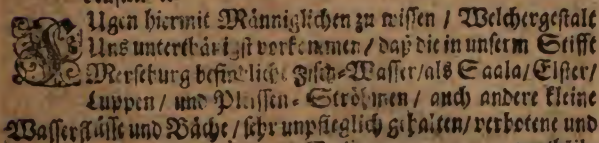 Fügen hiermit Männiglichen zu wissen / Welchergestalt
Uns unterthänigst vorkommen / daß die in unserm Stiffte
Merseburg befindliche Fisch-Wasser/als Saala/Elster/
Luppen / und Pleissen-Ströhmen / auch andere kleine
Wasserflüsse und Bäche / sehr unpfleglich gehalten/verbotene und